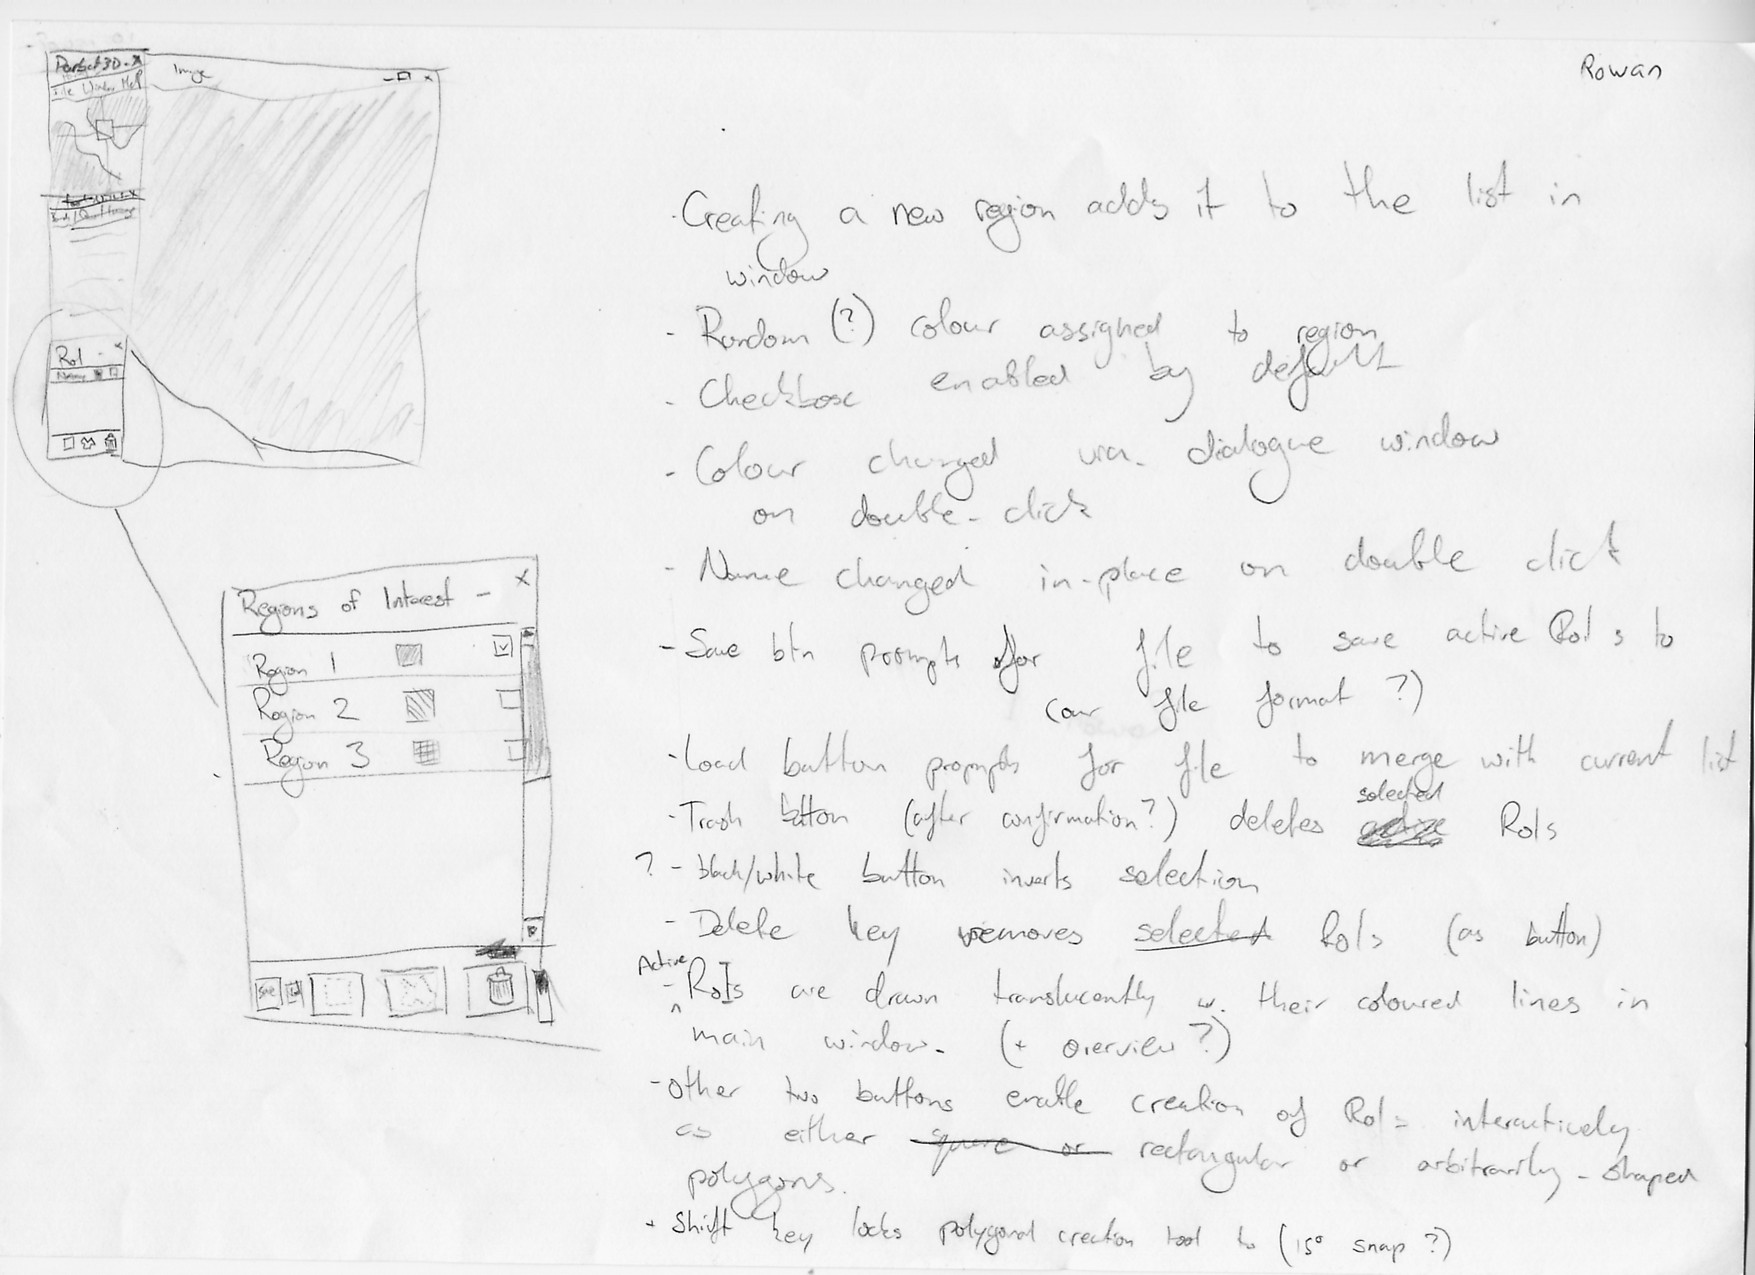 Rowan
Image
File Window Help
RoI
Regions of Interest -
Region 1
Region 2
Region 3
Save
- Creating a new region adds it to the list in
window
- Random (?) colour assigned to region
- Checkbox enabled by default
- Colour changed via. dialogue window
on double-click
- Name changed in-place on double click
- Save btn prompts for file to save active RoIs to
(our file format ?)
- Load button prompts for file to merge with current list
selected
- Trash button (after confirmation?) deletes RoIs
? - black/white button inverts selection
- Delete key removes selected RoIs (as button)
Active
- RoIs are drawn translucently w. their coloured lines in
main window. (+ overview ?)
- Other two buttons enable creation of RoIs interactively
as either square or rectangular or arbitrarily-shaped
polygons.
- Shift key locks polygonal creation tool to (15° snap ?)